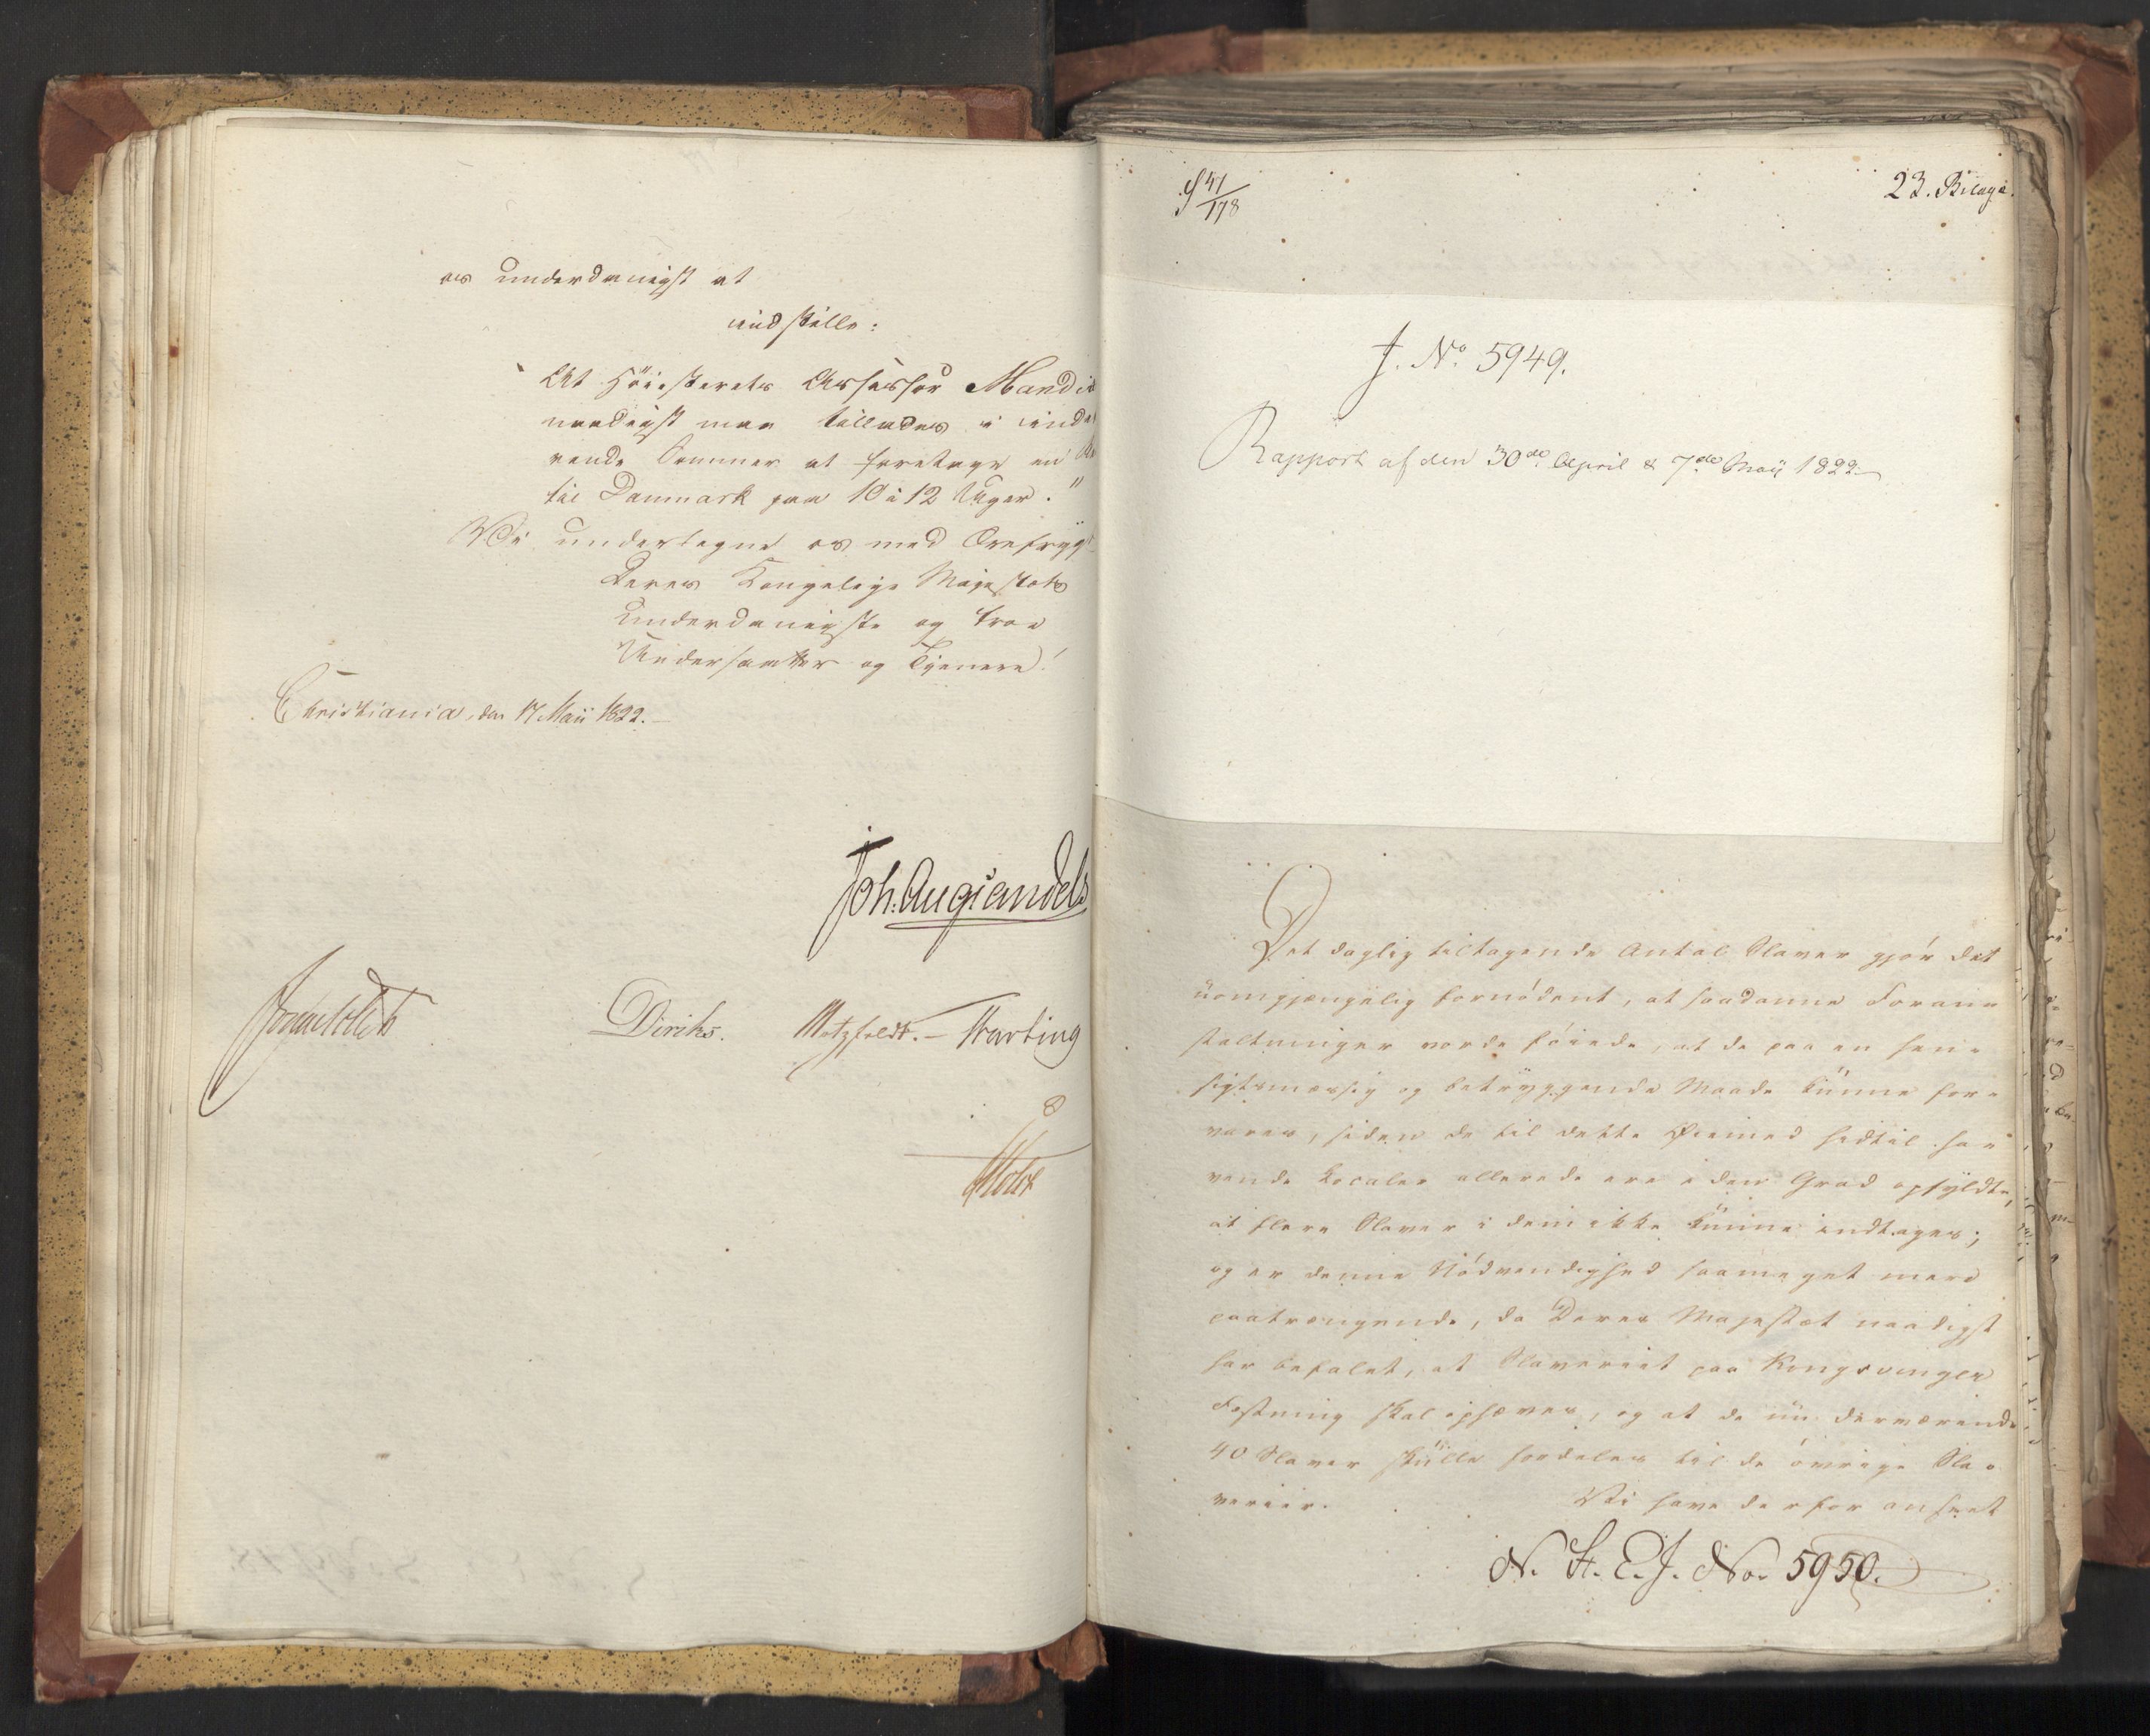 os underdanigst at
indstille:
"At Höiesterets Assessor Mandix
naadigst maa tillades i inde-
rende Sommer at foretage en
til Danmark paa 10 à 12 Uger."
Vi undertegne os med Ærefrygt
Deres Kongelige Majestæts
underdanigste og troe
Undersaatter og Tjenere!
Christiania, den 17 Maii 1822.
Joh: Aug: Sandels
Sommerhielm
Diriks. Motzfeldt. – Krefting
Holst
S 41/178
23. Bilage.
J. No 5949.
Rapport af den 30de April & 7de Maij 1822
Det daglig tiltagende Antal Slaver gjör det
uomgjængelig fornödent, at saadanne Foran-
staltninger vorde föiede, at de paa en hen-
sigtsmæssig og betryggende Maade kunne for-
vares, siden de til dette Öiemed hidtil ha-
vende Locales allerede ere i den Grad opfyldte,
at flere Slaver i dem ikke kunne indtages;
og er denne Nödvendighed saameget mere
paatrængende, da Deres Majestæt naadigst
har befalet, at Slaveriet paa Kongsvinger
Festning skal ophæves, og at de nu derværende
40 Slaver skulle fordeles til de övrige Sla-
verier. Vi have derfor anseet
N. St. E. J. No. 5950.